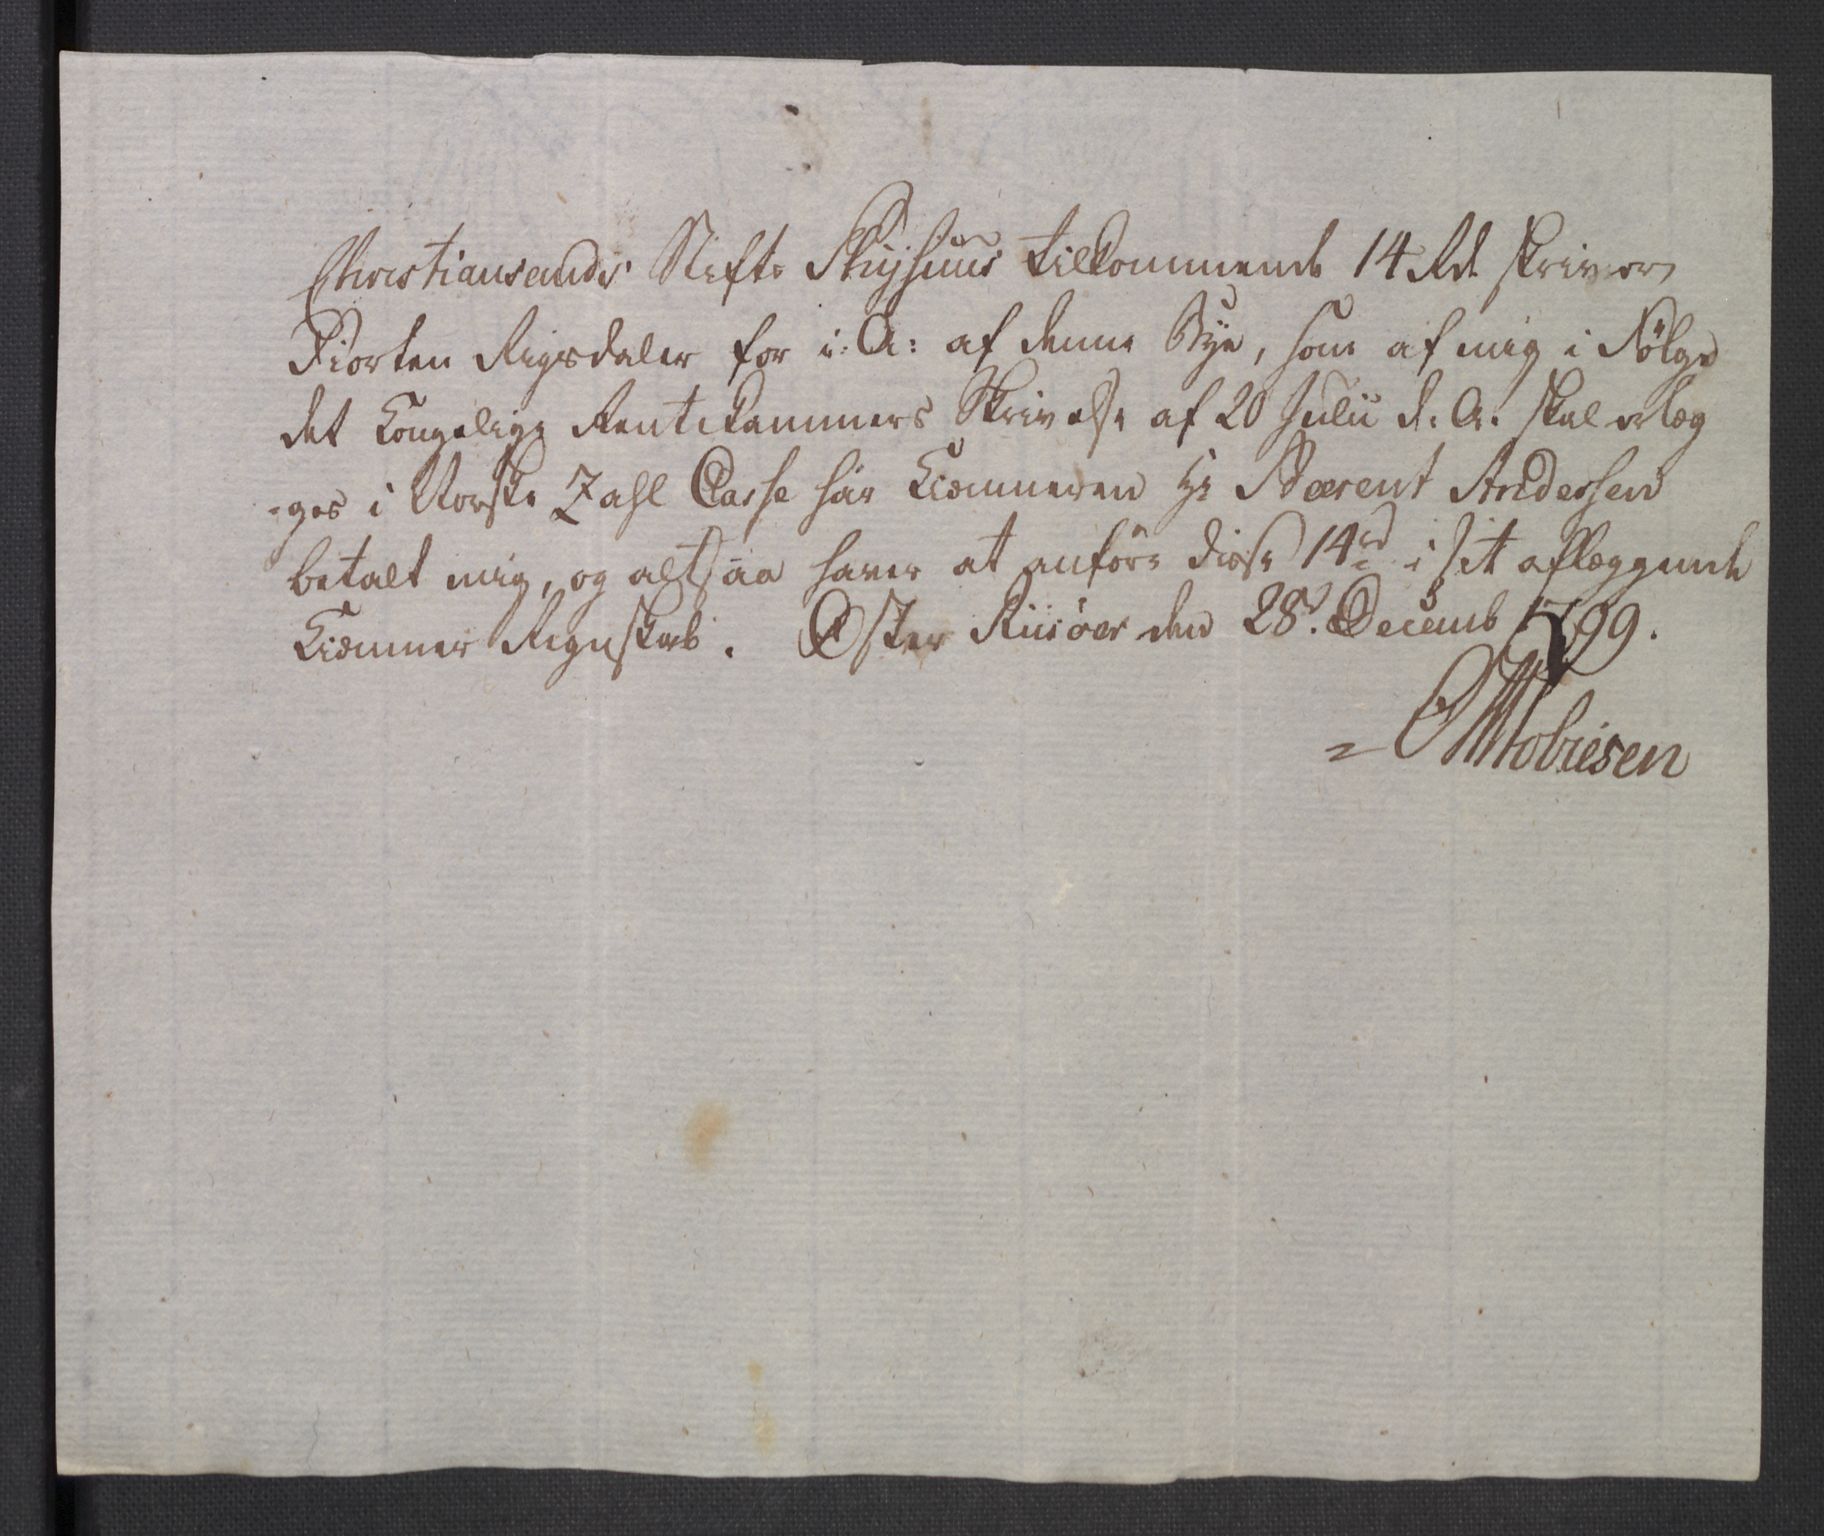 Christiansands Stifts Tugthuus tilkommende 14 Rd skriver
Fiorten Rigsdaler for i: A: af denne Bye, som af mig i Følge
det Kongelige Rentekammers Skrivelse af 20 Julii d: A: skal erlæg
-ges i Norske Zahl Casse har Kiæmneren Hr Bærent Anderssen
betalt mig, og altsaa haver at anføre disse 14 rd i sit aflæggende
Kiæmner Regnskab. Øster Riisøer den 28d Decemb 1799.
Tobiesen